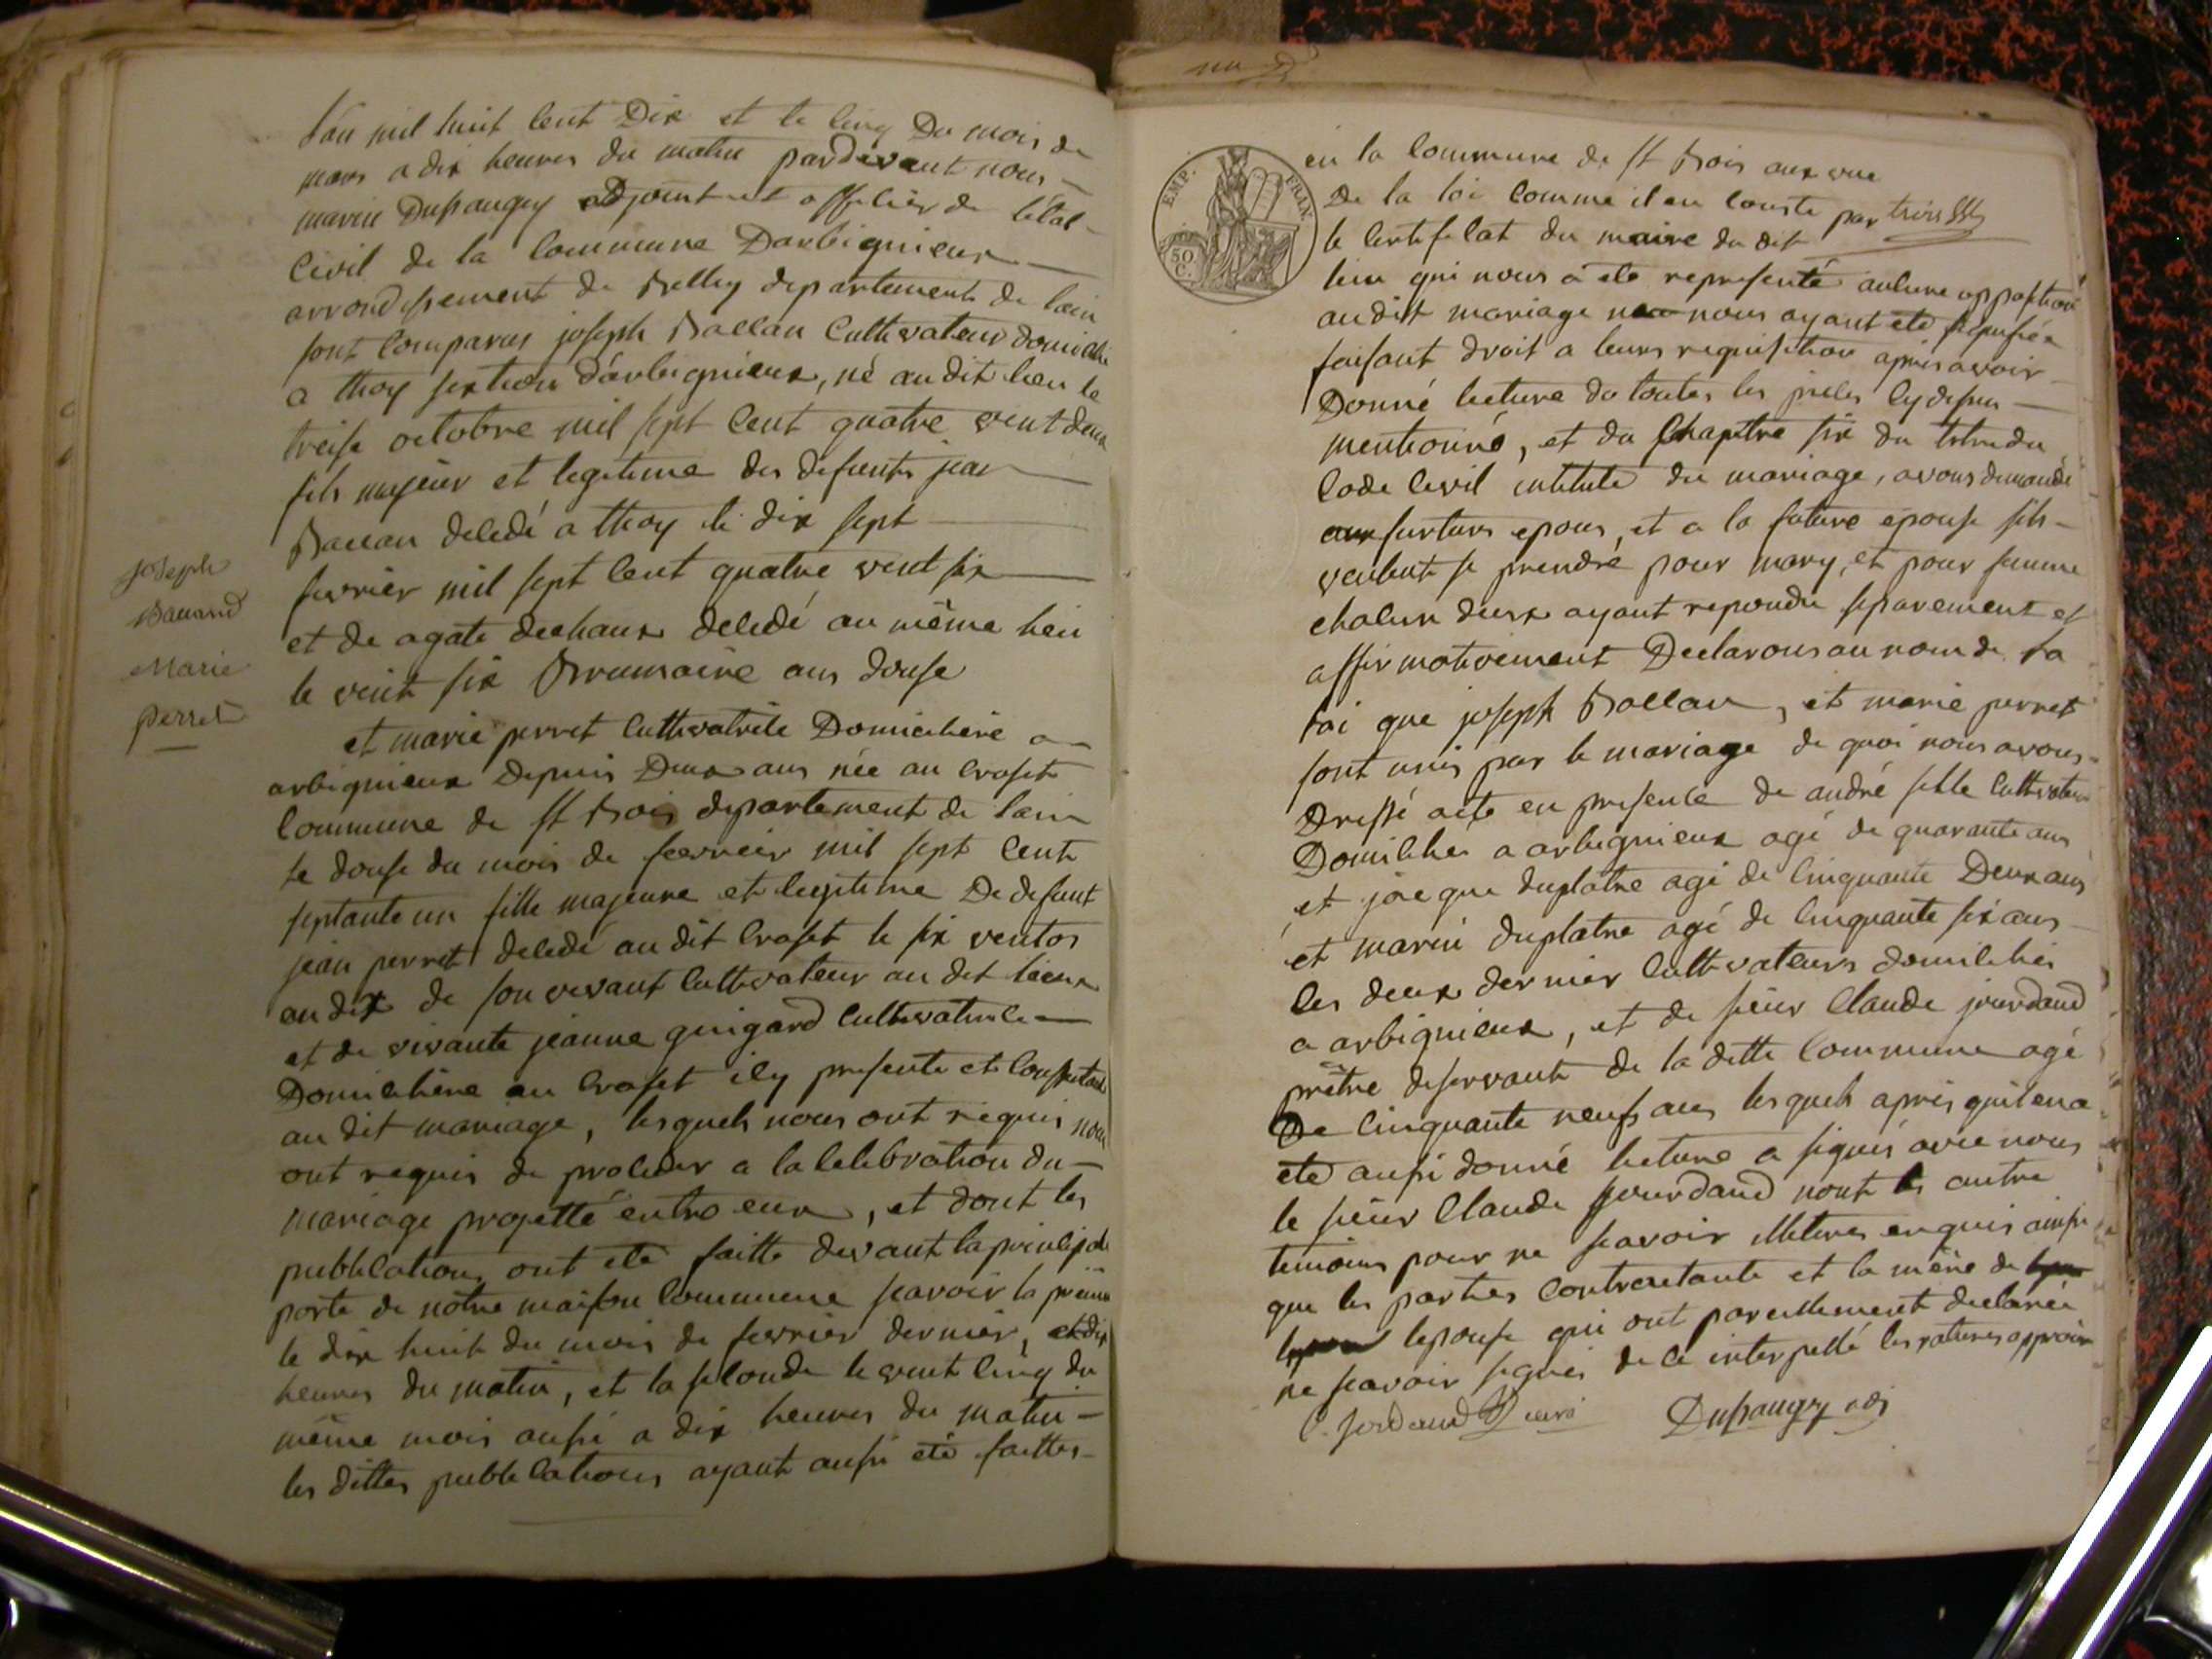 Joseph
Balland
Marie
Perret
L'an mil huit cent Dix et le cinq Du mois de
mars a dix heures du matin pardevant nous
marin Dupraugey adjoint et officier de létat
civil de la commune Darbignieux
arrondissement de Belley departement de lain
sont comparus joseph Ballan cultivateur domicilié
a thoy section d'arbignieux, né au dit lieu le
treise octobre mil sept cent quatre vint deux
fils majeur et legitime des defunts jean
Ballan décédé a thoy le dix sept
fevrier mil sept cent quatre vint six
et de agate dechaux décédé au même lieu
le vint six Brumaire ans douse
et marie perret cultivatrice Domiciliére a
arbignieux Depuis Deux ans née au croset
commune de st Bois departement de lain
le douse du mois de fevrier mil sept cent
septante un fille majeure et legitime De defunt
jean perret décédé au dit croset le six ventos
an dix de son vivant cultivateur au dit lieux
et de vivante jeanne guigard cultivatrice
Domiciliére au croset icy presente et consentante
au dit mariage, lesquels nous ont requis nous
ont requis de proceder a la celebration du
mariage projetté entre eux, et dont les
publications ont ete faitte devant la principale
porte de nôtre maison commune scavoir la premiere
le dix huit du mois de fevrier dernier, a dix
heures du matin, et la seconde le vint cinq du
même mois aussi a dix heures du matin
les dittes publications ayant aussi été faittes
EMP. FRAN.
50 C.
en la commune de st Bois aux vue
De la loi comme il en conste par
le certificat du maire du dit
lieu qui nous a ete représenté aucune opposition
audit mariage nous ayant ete signifiée
faisant droit a leurs requisition après avoir
Donné lecture de toutes les pieces cy dessus
mentionné, et du chapitre six du titre du
Code Civil intitulé du mariage, avons demandé
aux furturs epoux, et a la future epouse sils
veulent se prendre pour mary, et pour femme
chacun deux ayant repondu separement et
affirmativement Declarons au nom de la
loi que joseph Ballan, et marie perret
sont unis par le mariage de quoi nous avons
Dressé acte en presence de andré cultivateur
Domicilies a arbignieux agé de quarante ans
et jacque duplatre agé de cinquante Deux ans
et marin duplatre agé de cinquante six ans
les deux dernier cultivateurs domiciliés
a arbignieux, et de sieur Claude jourdand
prêtre deservant de la ditte commune agé
De cinquante neuf ans lesquels apres quil en a
ete aussi donné lecture a signés avec nous
le sieur Claude jourdand nont les autre
temoins pour ne scavoir enquis ainsi
que les parties contractante et la mère de
lepouse qui ont pareillement declarée
ne scavoir signés de ce interpellé les ratures approuvé
C. Jordand Dupraugey adj